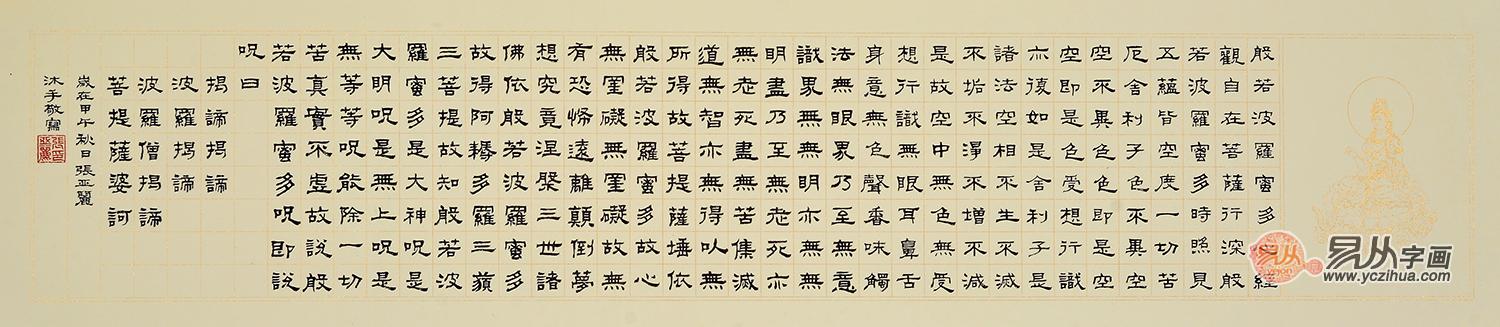 般若波羅蜜多心經
觀自在菩薩行深般
若波羅蜜多時照見
五蘊皆空度一切苦
厄舍利子色不異空
空不異色色即是空
空即是色受想行識
亦復如是舍利子是
諸法空相不生不滅
不垢不淨不增不減
是故空中無色無受
想行識無眼耳鼻舌
身意無色聲香味觸
法無眼界乃至無意
識界無無明亦無無
明盡乃至無老死亦
無老死盡無苦集滅
道無智亦無得以無
所得故菩提薩埵依
般若波羅蜜多故心
無罣礙無罣礙故無
有恐怖遠離顛倒夢
想究竟涅槃三世諸
佛依般若波羅蜜多
故得阿耨多羅三藐
三菩提故知般若波
羅蜜多是大神呪是
大明呪是無上呪是
無等等呪能除一切
苦真實不虛故說般
若波羅蜜多呪即說
呪曰
揭諦揭諦
波羅揭諦
波羅僧揭諦
菩提薩婆訶
歲在甲午秋日張亞麗
沐手敬寫
易从
易从字画
www.yczihua.com